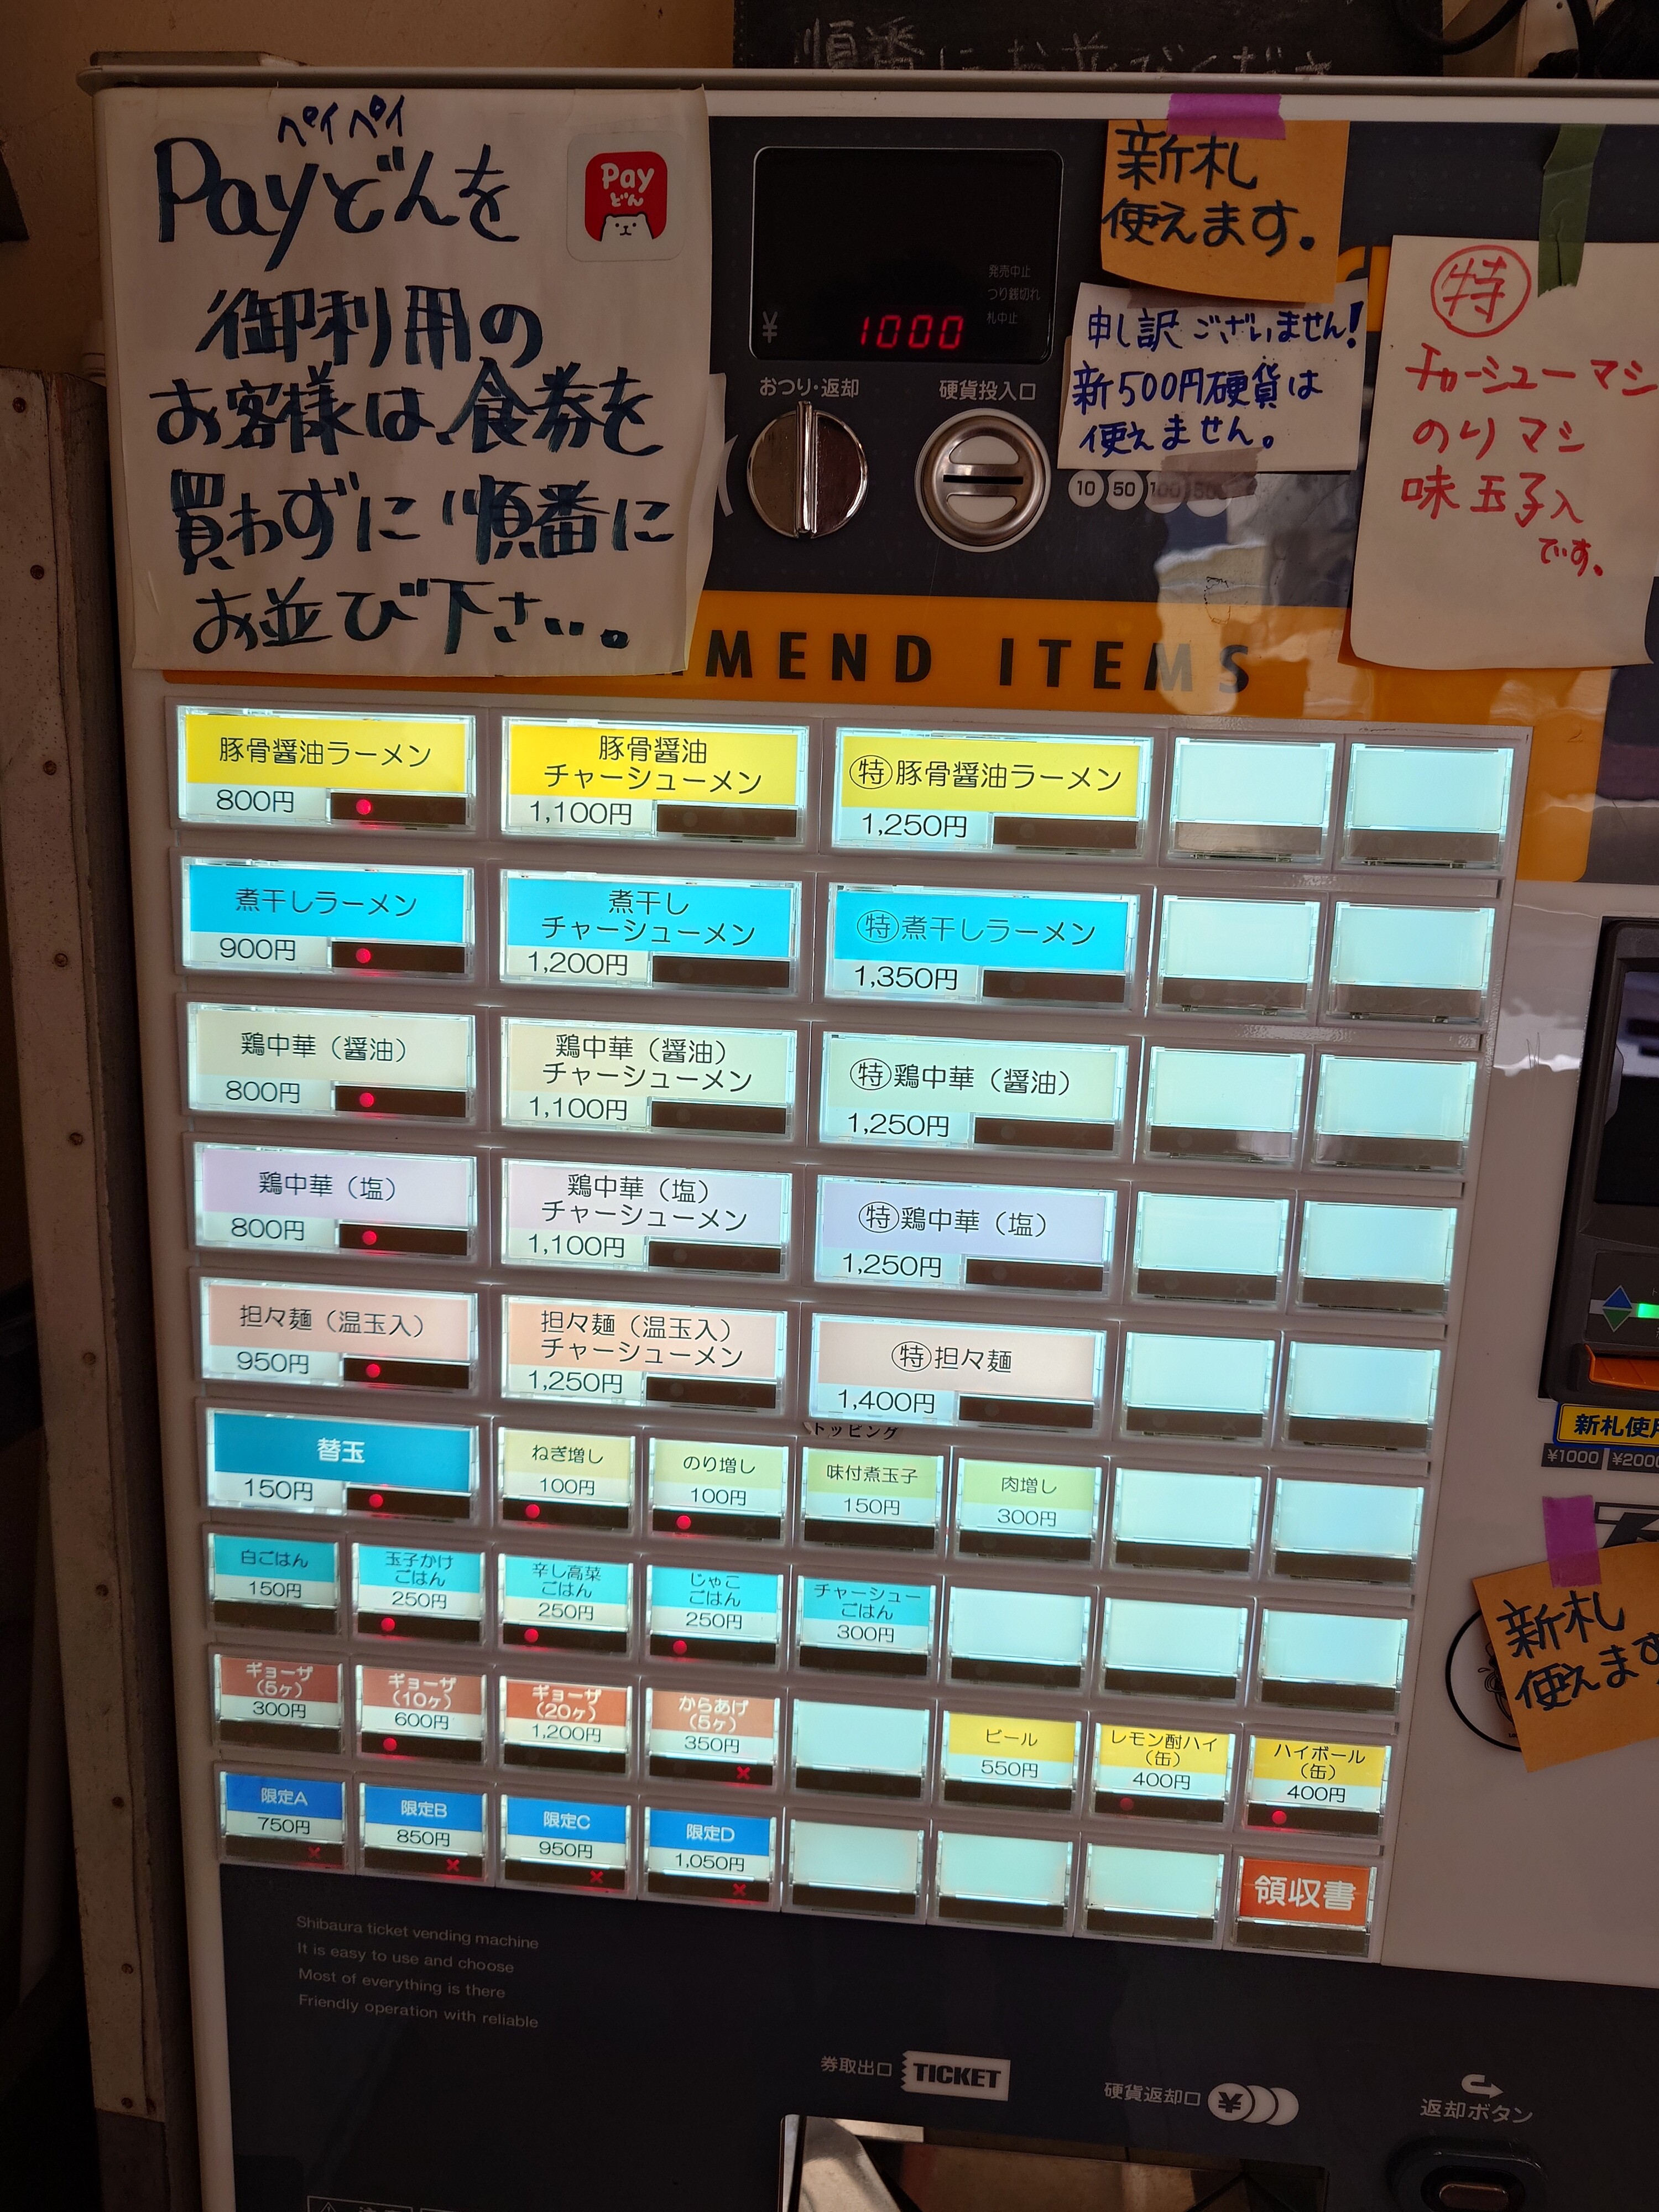 順番にお並びくださ
ペイペイ
Payどんを
Pay
どん
御利用の
お客様は、食券を
買わずに順番に
お並び下さい。
発売中止
つり銭切れ
札中止
¥ 1000
おつり・返却
硬貨投入口
新札
使えます。
申し訳ございません!
新500円硬貨は
使えません。
10 50 100 500
特
チャーシューマシ
のりマシ
味玉子入
です。
MEND ITEMS
豚骨醤油ラーメン
800円
豚骨醤油
チャーシューメン
1,100円
特豚骨醤油ラーメン
1,250円
煮干しラーメン
900円
煮干し
チャーシューメン
1,200円
特煮干しラーメン
1,350円
鶏中華(醤油)
800円
鶏中華(醤油)
チャーシューメン
1,100円
特鶏中華(醤油)
1,250円
鶏中華(塩)
800円
鶏中華(塩)
チャーシューメン
1,100円
特鶏中華(塩)
1,250円
担々麺(温玉入)
950円
担々麺(温玉入)
チャーシューメン
1,250円
特担々麺
1,400円
トッピング
替玉
150円
ねぎ増し
100円
のり増し
100円
味付煮玉子
150円
肉増し
300円
白ごはん
150円
玉子かけ
ごはん
250円
辛し高菜
ごはん
250円
じゃこ
ごはん
250円
チャーシュー
ごはん
300円
ギョーザ
(5ヶ)
300円
ギョーザ
(10ヶ)
600円
ギョーザ
(20ヶ)
1,200円
からあげ
(5ヶ)
350円
ビール
550円
レモン酎ハイ
(缶)
400円
ハイボール
(缶)
400円
限定A
750円
限定B
850円
限定C
950円
限定D
1,050円
領収書
新札使用
¥1000 ¥2000
新札
使えます
Shibaura ticket vending machine
It is easy to use and choose
Most of everything is there
Friendly operation with reliable
券取出口
TICKET
硬貨返却口
¥
返却ボタン